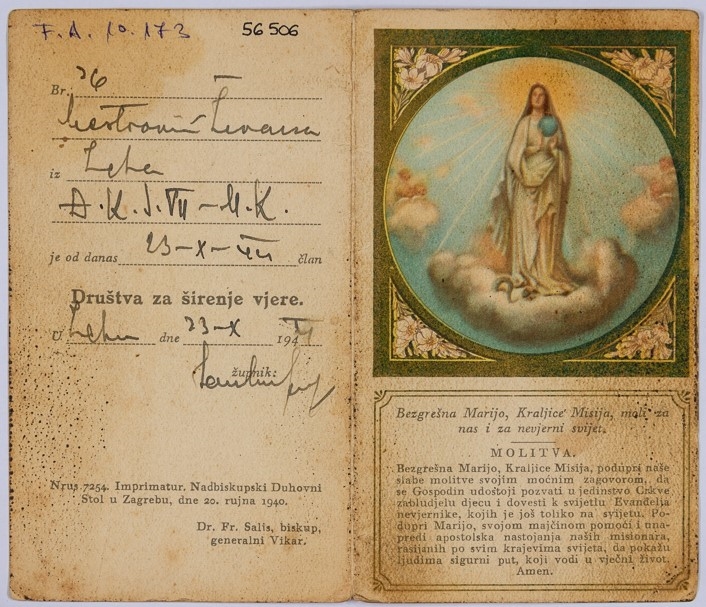 F. A. 10.173
56 506
Br. 26
iz
D.K.J. VII - M.K.
je od danas 23-X- član
Društva za širenje vjere.
U dne 23-X 194
župnik:
Nrus 7254. Imprimatur. Nadbiskupski Duhovni
Stol u Zagrebu, dne 20. rujna 1940.
Dr. Fr. Salis, biskup,
generalni Vikar.
Bezgrešna Marijo, Kraljice Misija, moli za
nas i za nevjerni svijet.
MOLITVA.
Bezgrešna Marijo, Kraljice Misija, podupri naše
slabe molitve svojim moćnim zagovorom, da
se Gospodin udostoji pozvati u jedinstvo Crkve
zabludjelu djecu i dovesti k svijetlu Evanđelja
nevjernike, kojih je još toliko na svijetu. Po-
dupri Marijo, svojom majčinom pomoći i una-
predi apostolska nastojanja naših misionara,
rasijanih po svim krajevima svijeta, da pokažu
ljudima sigurni put, koji vodi u vječni život.
Amen.